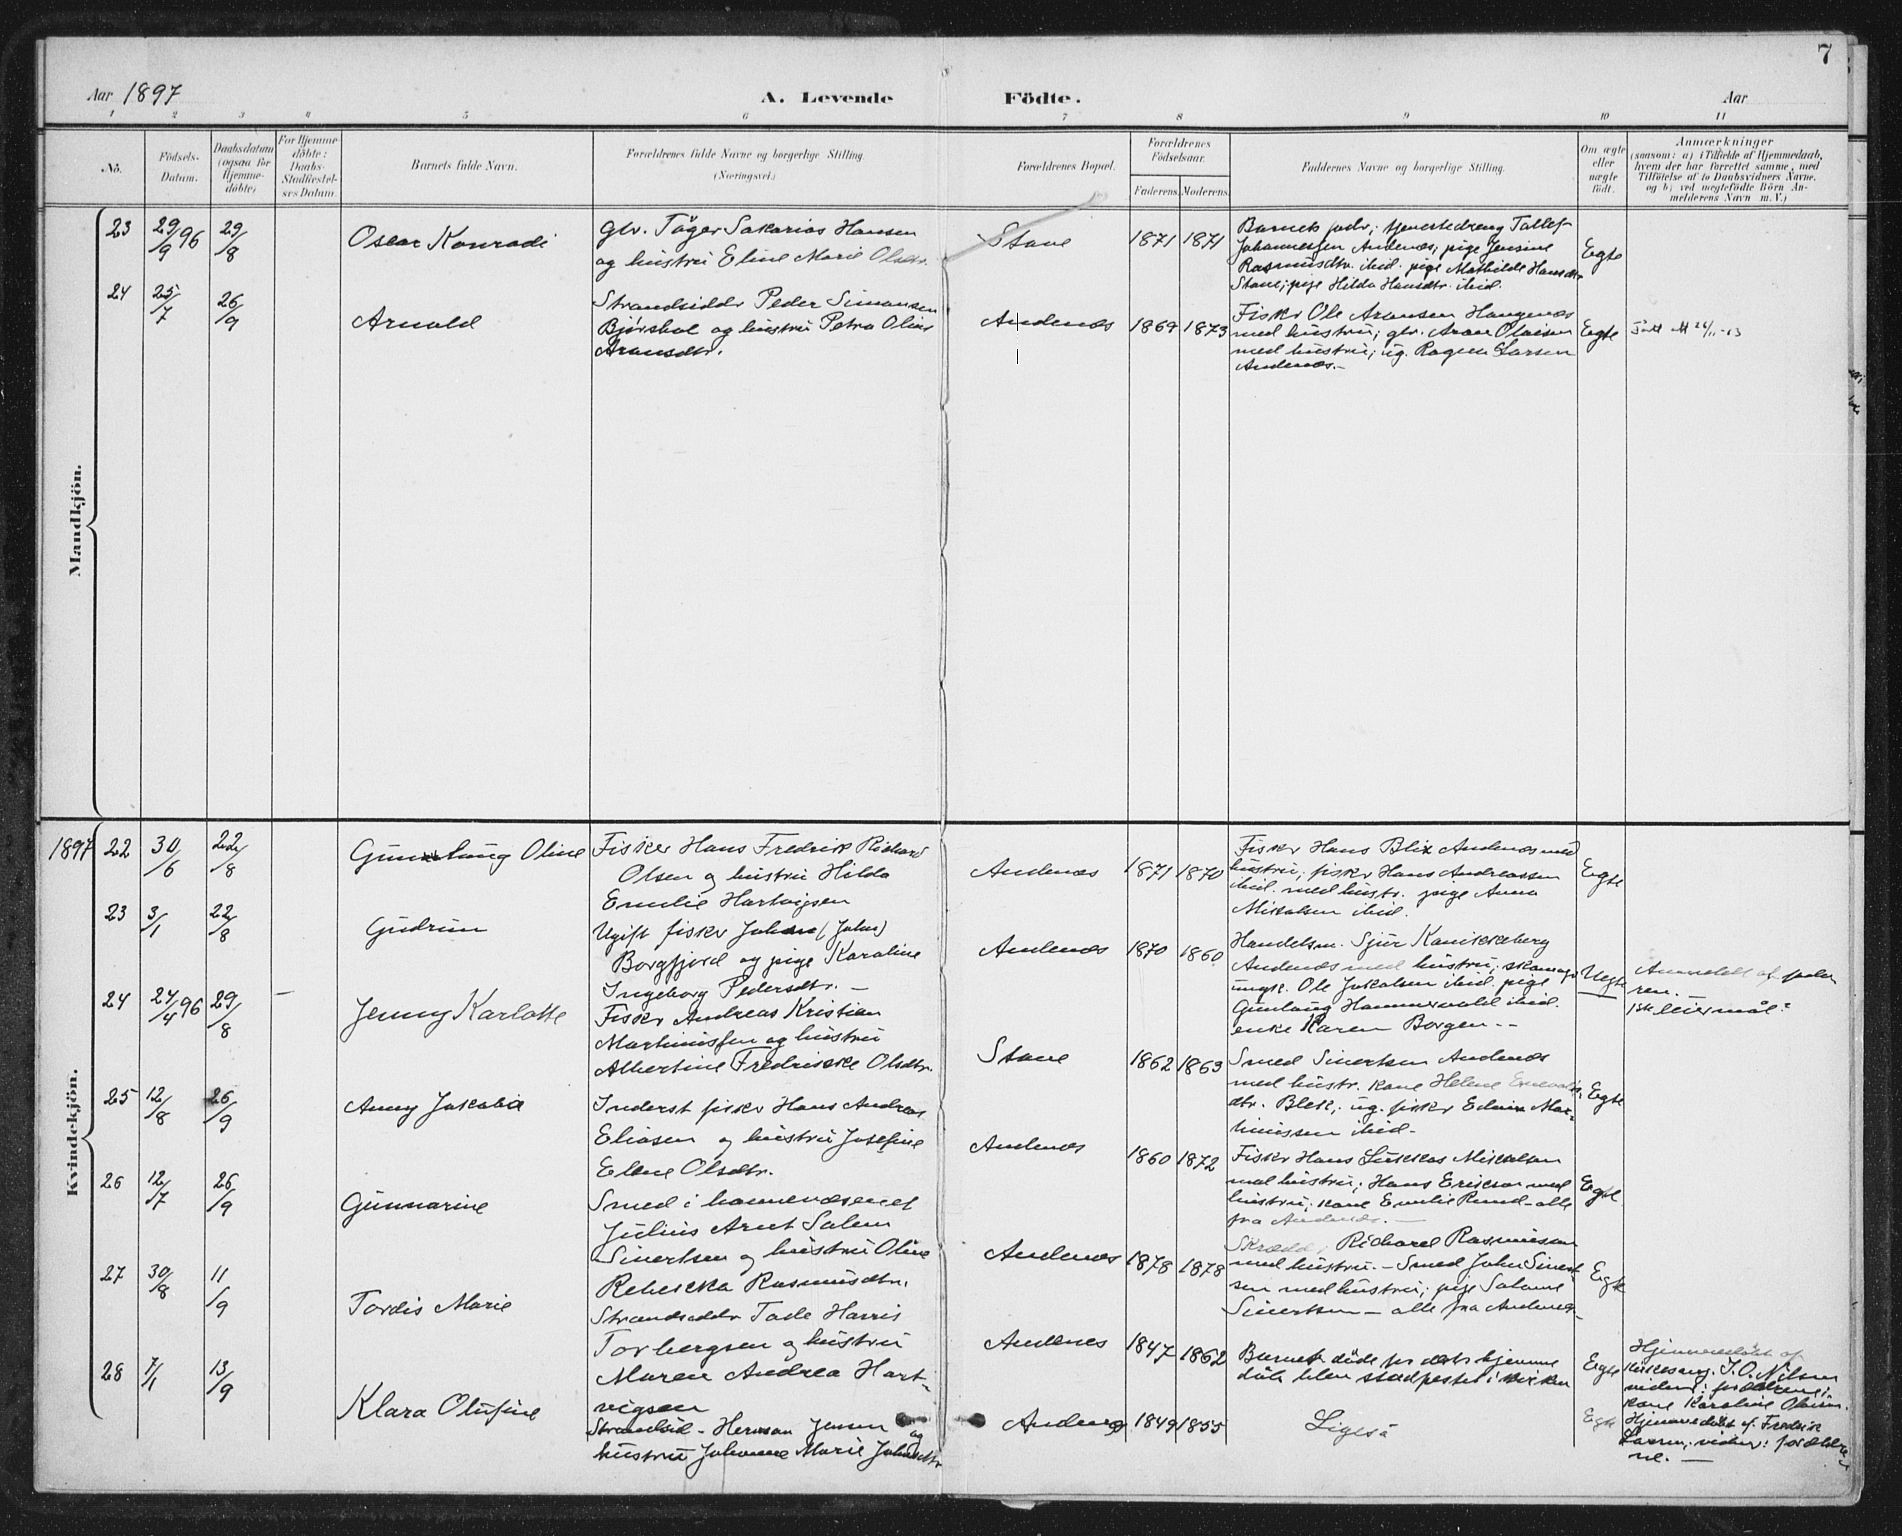 7
Aar 1897
A. Levende Födte.
Aar
1 2 3 4 5 6 7 8 9 10 11
No.
Födsels-Datum.
Daabsdatum (ogsaa for Hjemme-döbte)
For Hjemme-döbte: Daabs-Stadfæstel-ses Datum.
Barnets fulde Navn.
Forældrenes fulde Navne og borgerlige Stilling. (Næringsvei.)
Forældrenes Bopæl.
Forældrenes Födselsaar.
Faderens Moderens
Faddernes Navne og borgerlige Stilling.
Om ægte eller uægte født.
Anmærkninger
(saasom: a) i Tilfælde af Hjemmedaab,
hvem der har forrettet samme, med
Tilföielse af to Daabsvidners Navne,
og b) ved uægtefödte Börn An-
melderens Navn m. V.)
Mandkjön.
23 29/9 96 29/8
Oscar Konradi
Gbr. Töger Sakarias Hansen
og hustru Eline Marie Olsdtr.
Stave
1871 1871
Barnets fadr; tjenestedreng Tollef
Johannessen Andenæs; pige Jensine
Rasmusdtr. ibid. pige Mathilde Hansdtr
Stave; pige Hilda Hansdtr. ibid.
Egte
24 25/7 26/9
Arnold
Strandsiddr Peder Simonsen
Bjørskol og hustru Petra Oline
Aronsdtr.
Andenæs
1869 1873
Fiskr Ole Aronsen Haugenæs
med hustru; gbr. Aron Olaisen
med hustru; ug. Larsen
Andenæs.-
Egte
26/11-23
Kvindekjön.
1897 22 30/6 22/8
Gunlaug Oline
Fisker Hans Fredrik Richard
Olsen og hustru Hilda
Emilie Hartvigsen
Andenæs
1871 1870
Fiskr Hans Blix Andenæs med
hustru, fiskr Hans Andreassen
ibid. med hustr. pige Anna
Mikalsen ibid.
Egte
23 3/1 22/8
Gudrun
Ugift fiskr Johan (John)
Borgfjord og pige Karoline
Ingeborg Pedersdtr. -
Andenæs
1870 1860
Handelsm. Sjur Kanikkeberg
Andenæs med hustru;
ungk. Ole Jakobsen ibid. pige
Gunlaug Hammervold ibid.
enke Karen Borgen --
Uegte
Anmeldt af fade
ren.
1ste leiermål?
24 24/4 96 29/8 -
Jenny Karlotte
Fiskr Andreas Kristian
Martinussen og hustru
Albertine Fredrikke Olsdtr.
Stave
1862 1863
Smed Sivertsen Andenæs
med hustr. kone Helene
dtr. Blek; ug. fiskr Edvin Mar-
tinussen ibid-
Egte
25 12/8 26/9
Anny Jakobie
Inderst fiskr Hans Andreas
Eliasen og hustru Josefine
Elene Olsdtr.
Andenæs
1860 1872
Fiskr Hans Lukkas Mikalsen
med hustru; Hans Eriksen med
hustru; kone Emilie Rund - alle
fra Andenæs. -
Egte
26 12/7 26/9
Gunnarine
Smed i havnevæsenet
Julius Arnt Salem
Sivertsen og hustru Oline
Rebekka Rasmusdtr.
Andenæs
1878 1878
Skrædd; Richard Rasmussen
med hustru. - Smed John Sivert-
sen med hustru; pige Salome
Sivertsen - alle fra Andenæs.
Egte
27 30/8 11/9
Tordis Marie
Strandsiddr Tode Harris
Torbergsen og hustru
Maren Andrea Hart-
vigsen
Andenes
1847 1862
Barnet døde før dets hjemme
dåb blev stadfestet i kirken
Egte
Hjemmedöbt af
kirkesang. J. O. Nilsen
vidner: forældrene;
kone Karoline Olaisen.
28 7/1 13/9
Klara Olufine
Strandsid- Herman Jensen og
hustru Johanne Marie Johnsdtr.
Andenæs
1849 1855
Ligeså
Egte
Hjemmedöbt af Fredrik
Larsen; vidner: forældre-
ne. -